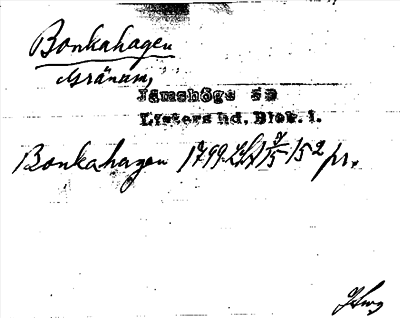 Bonkahagen
Gränum,
Jämshögs sn
Listers hd, Blek. l.
Bonkahagen 1799 LSA 15² pr.